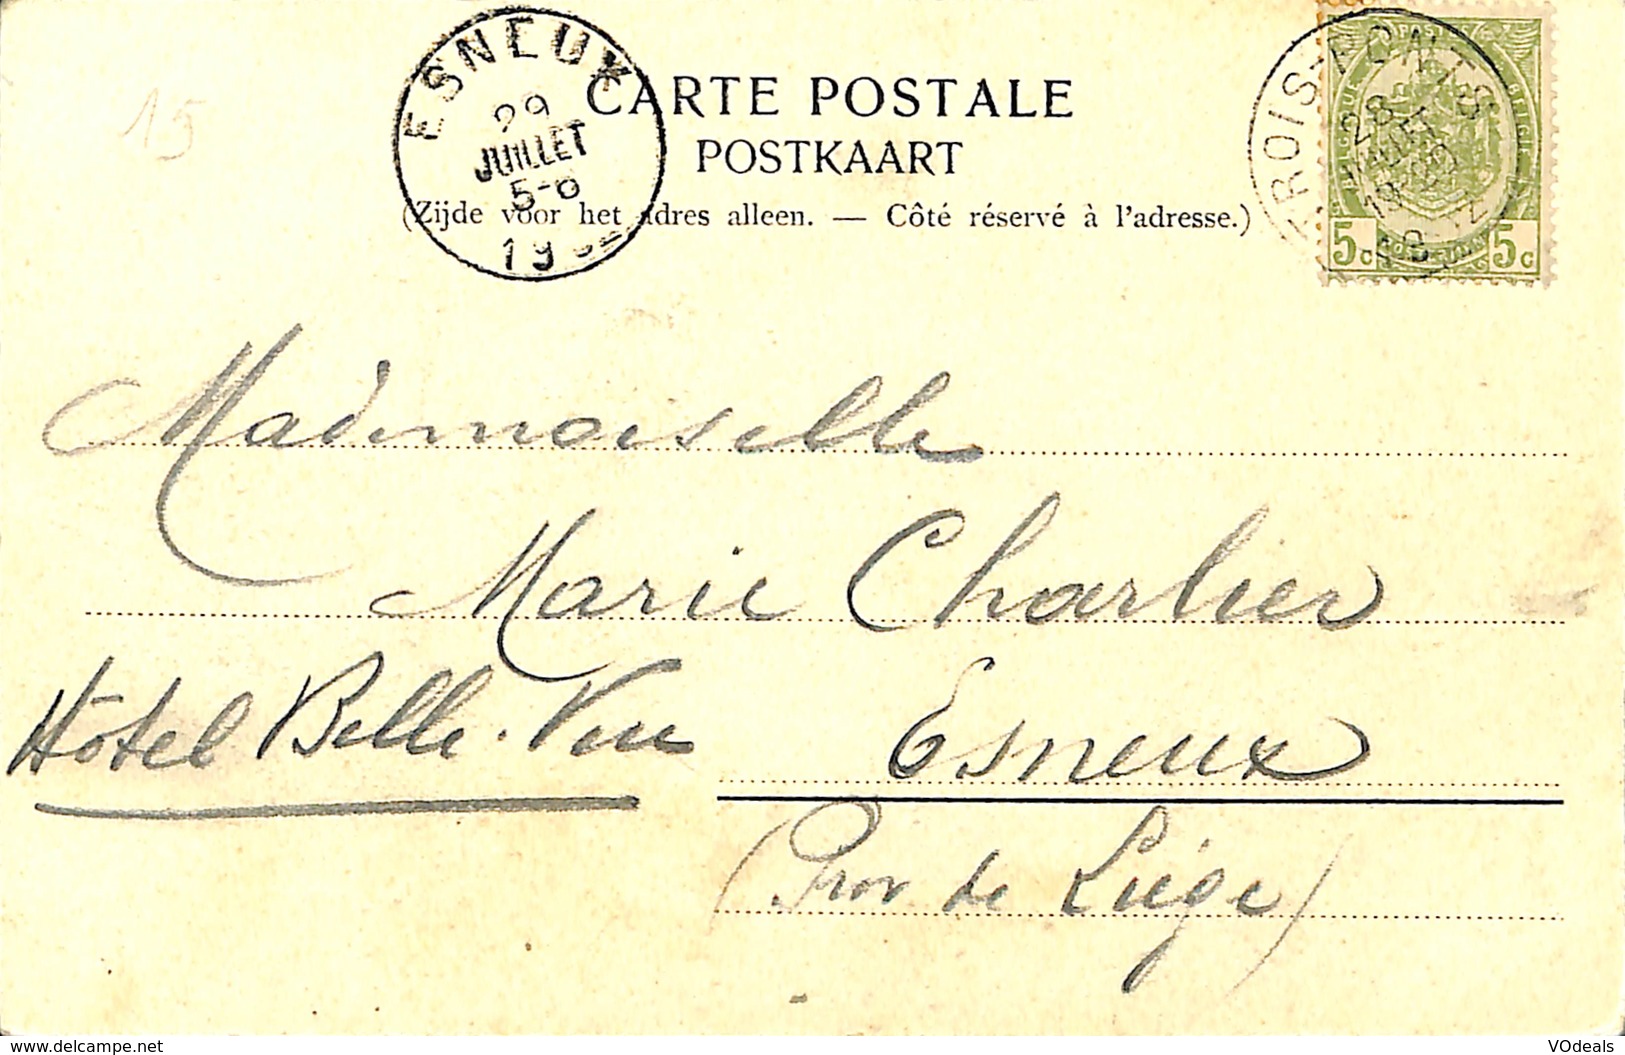 ESNEUX
29
JUILLET
5-6
19
15
CARTE POSTALE
POSTKAART
(Zijde voor het adres alleen. — Côté réservé à l'adresse.)
TROIS-PONTS
28
BELGIQUE
BELGIE
5c 5c
Mademoiselle
Marie Charlier
Hôtel Belle-Vue
Esneux
(Prov de Liége)
www.delcampe.net
VOdeals